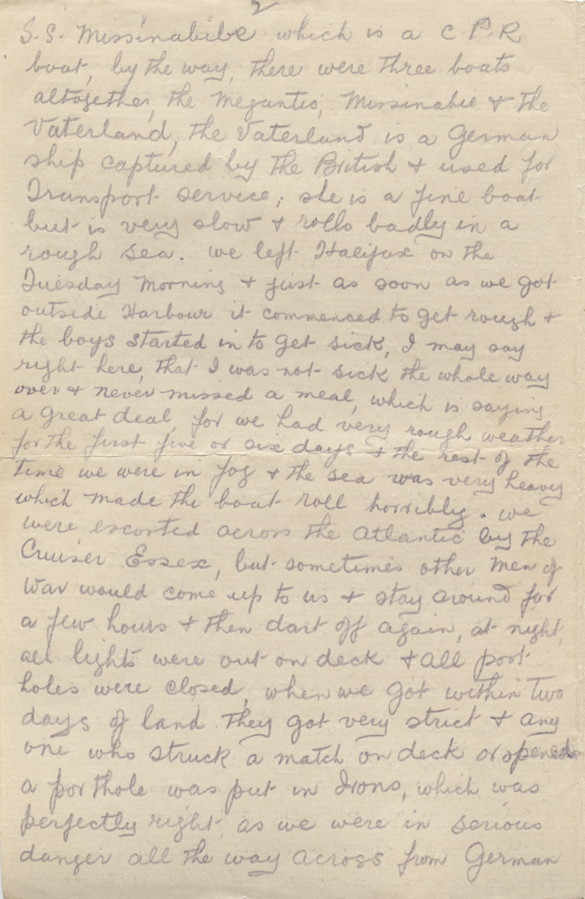 2
S.S. Missinabibe which is a C.P.R
boat, by the way, there were three boats
altogether, the Megantic, Missinabie & the
Vaterland, the Vaterland is a German
ship captured by the British & used for
Transport service; she is a fine boat
but is very slow & rolls badly in a
rough sea. We left Halifax on the
Tuesday Morning & just as soon as we got
outside Harbour it commenced to get rough &
the boys started in to get sick, I may say
right here, that I was not sick the whole way
over & never missed a meal, which is saying
a great deal, for we had very rough weather
for the first five or six days & the rest of the
time we were in fog & the sea was very heavy
which made the boat roll horribly. We
were escorted across the Atlantic by the
Cruiser Essex, but sometimes other Men of
War would come up to us & stay around for
a few hours & then dart off again, at night,
all lights were out on deck & all port
holes were closed, when we got within two
days of land they got very strict & any
one who struck a match on deck or opened
a porthole was put in Irons, which was
perfectly right, as we were in serious
danger all the way across from German